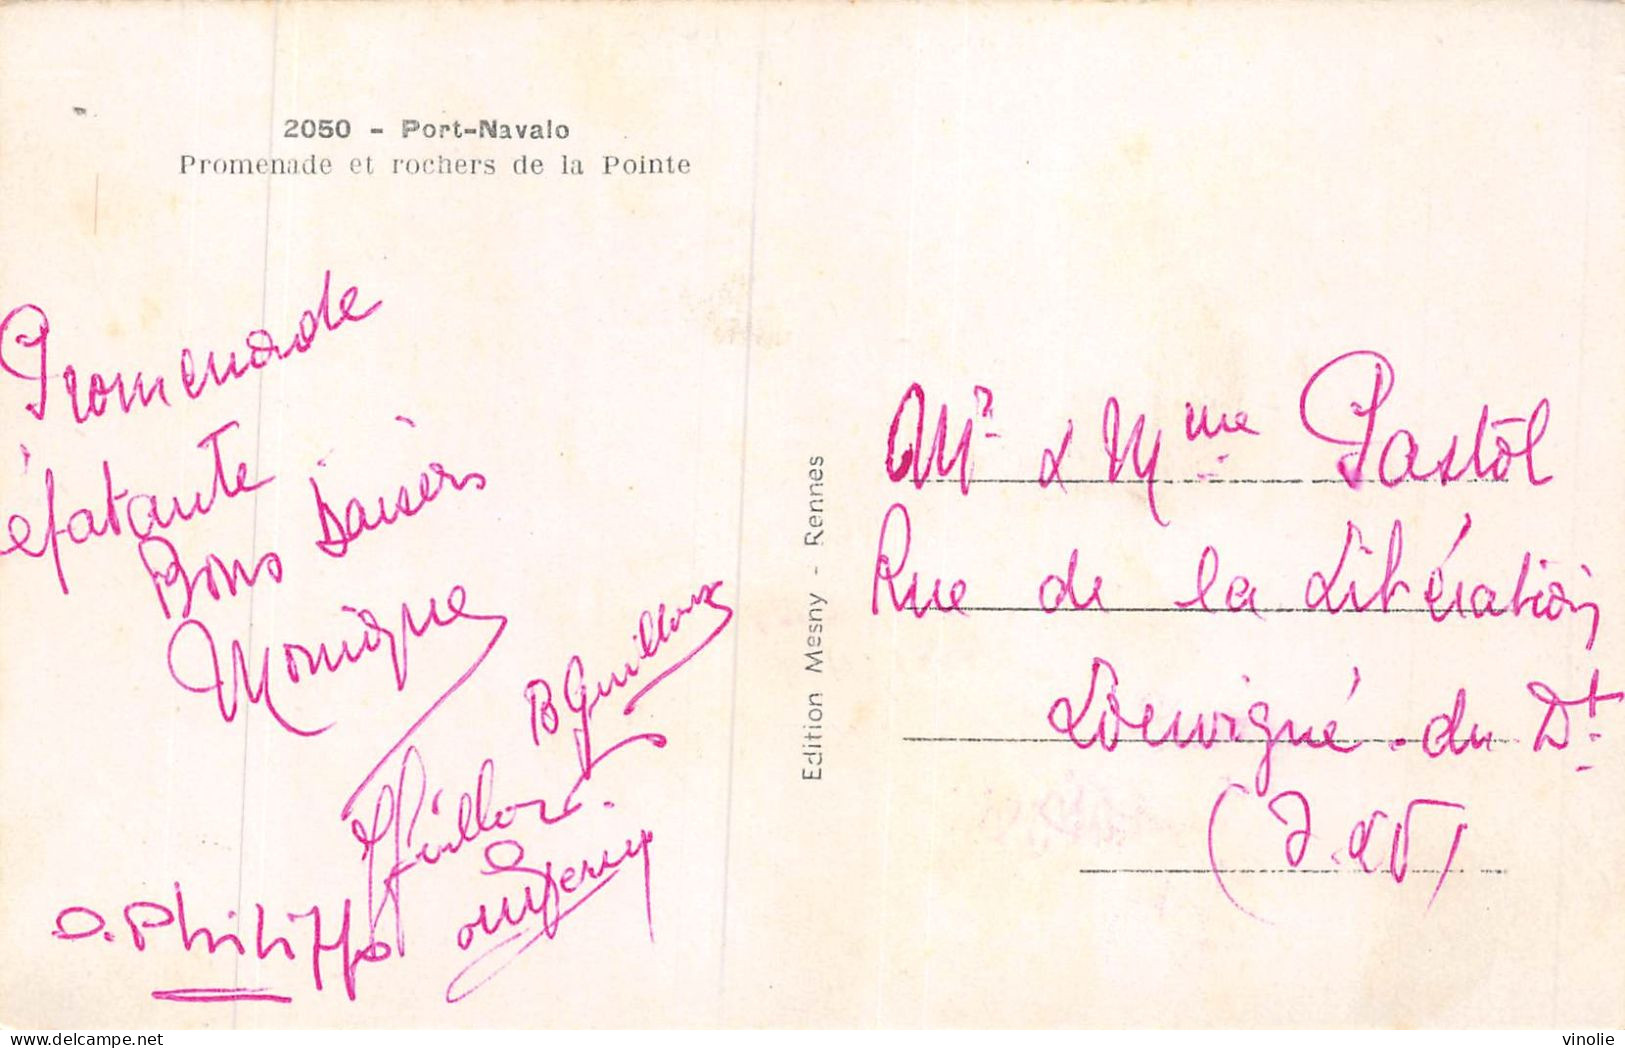 2050 - Port-Navalo
Promenade et rochers de la Pointe
Promenade
éfatante
Bons Baisers
Monique
B Guilloux
O. Philippe
Edition Mesny - Rennes
Mr & Mme Pastôl
Rue de la Libération
Louvigné-du-Dt
(I.&V)
vinolie